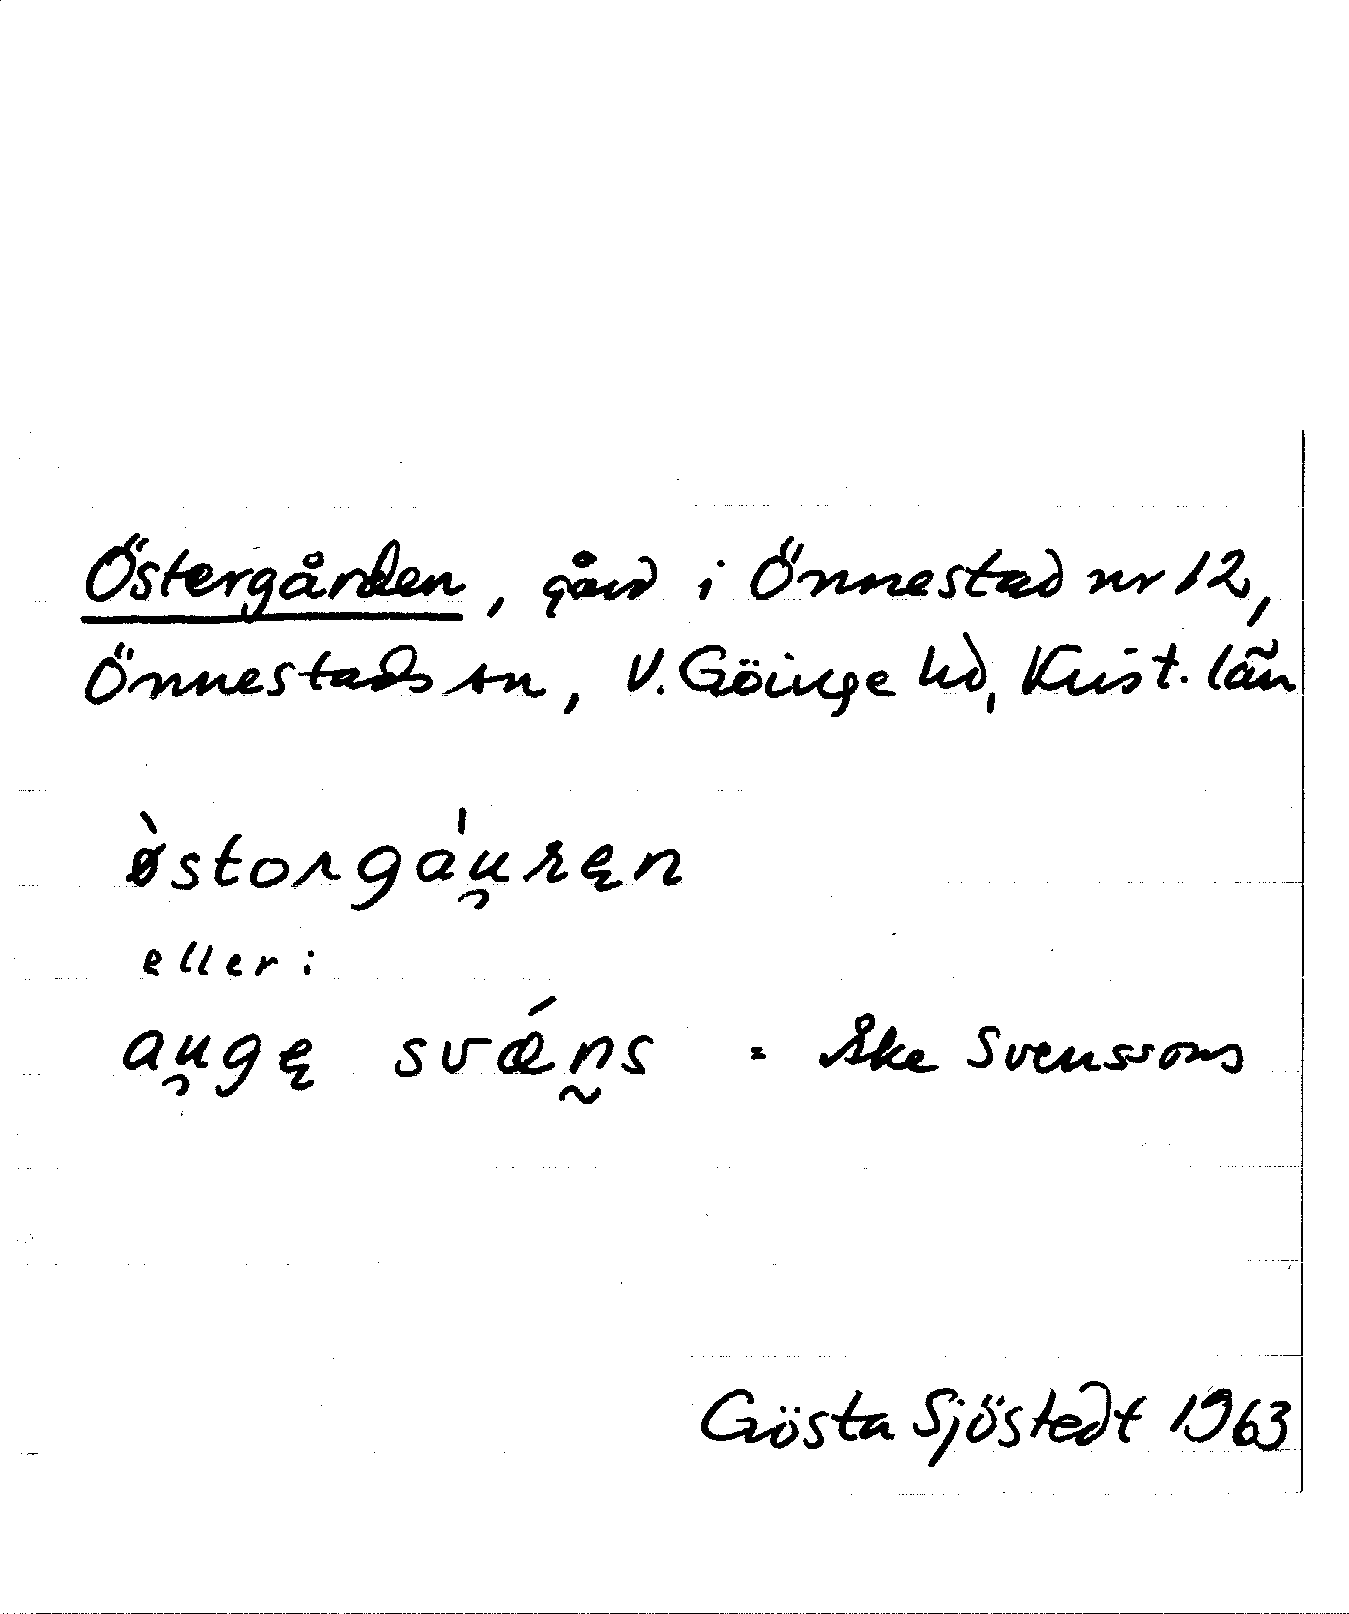 Östergården, gård i Önnestad nr 12,
Önnestads sn, V. Göinge hd, Krist. län
østorgáu̯ręn
eller:
au̯gę svǽn̰s = Åke Svenssons
Gösta Sjöstedt 1963